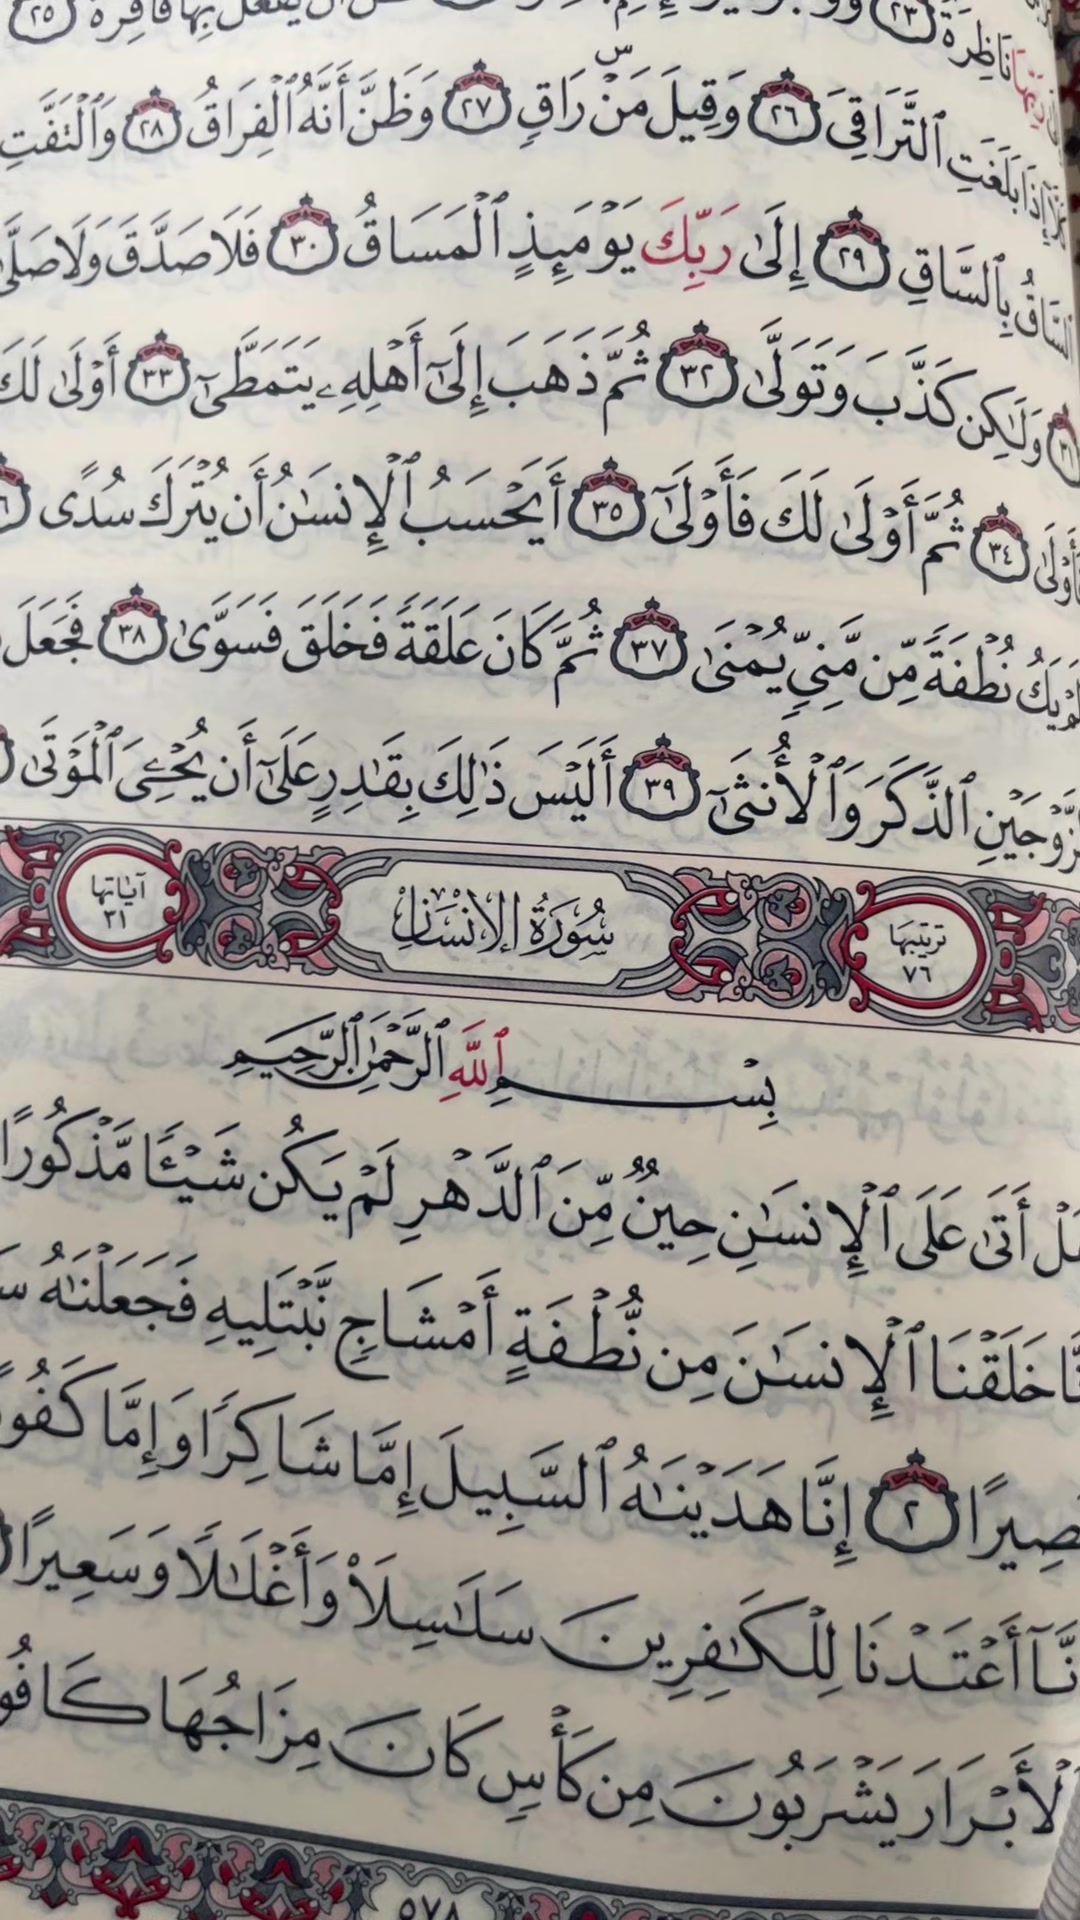 نَاظِرَةٌ ٢٣
تَظُنُّ أَن يُفْعَلَ بِهَا فَاقِرَةٌ ٢٥
إِذَا بَلَغَتِ ٱلتَّرَاقِيَ ٢٦ وَقِيلَ مَنۡۜ رَاقٍ ٢٧ وَظَنَّ أَنَّهُ ٱلْفِرَاقُ ٢٨ وَٱلْتَفَّتِ
ٱلسَّاقُ بِٱلسَّاقِ ٢٩ إِلَىٰ رَبِّكَ يَوْمَئِذٍ ٱلْمَسَاقُ ٣٠ فَلَا صَدَّقَ وَلَا صَلَّىٰ
٣١ وَلَٰكِن كَذَّبَ وَتَوَلَّىٰ ٣٢ ثُمَّ ذَهَبَ إِلَىٰٓ أَهْلِهِۦ يَتَمَطَّىٰٓ ٣٣ أَوْلَىٰ لَكَ
فَأَوْلَىٰ ٣٤ ثُمَّ أَوْلَىٰ لَكَ فَأَوْلَىٰٓ ٣٥ أَيَحْسَبُ ٱلْإِنسَٰنُ أَن يُتْرَكَ سُدًى
أَلَمْ يَكُ نُطْفَةً مِّن مَّنِيٍّ يُمْنَىٰ ٣٧ ثُمَّ كَانَ عَلَقَةً فَخَلَقَ فَسَوَّىٰ ٣٨ فَجَعَلَ
ٱلزَّوْجَيْنِ ٱلذَّكَرَ وَٱلْأُنثَىٰٓ ٣٩ أَلَيْسَ ذَٰلِكَ بِقَٰدِرٍ عَلَىٰٓ أَن يُحْـِۧيَ ٱلْمَوْتَىٰ
ترتيبها ٧٦ سُورَةُ الإِنْسَانِ آياتها ٣١
بِسْمِ ٱللَّهِ ٱلرَّحْمَٰنِ ٱلرَّحِيمِ
هَلْ أَتَىٰ عَلَى ٱلْإِنسَٰنِ حِينٌ مِّنَ ٱلدَّهْرِ لَمْ يَكُن شَيْـًٔا مَّذْكُورًا
إِنَّا خَلَقْنَا ٱلْإِنسَٰنَ مِن نُّطْفَةٍ أَمْشَاجٍ نَّبْتَلِيهِ فَجَعَلْنَٰهُ
بَصِيرًا ٢ إِنَّا هَدَيْنَٰهُ ٱلسَّبِيلَ إِمَّا شَاكِرًا وَإِمَّا كَفُورًا
إِنَّآ أَعْتَدْنَا لِلْكَٰفِرِينَ سَلَٰسِلَا۟ وَأَغْلَٰلًا وَسَعِيرًا
ٱلْأَبْرَارَ يَشْرَبُونَ مِن كَأْسٍ كَانَ مِزَاجُهَا كَافُورًا
٥٧٨